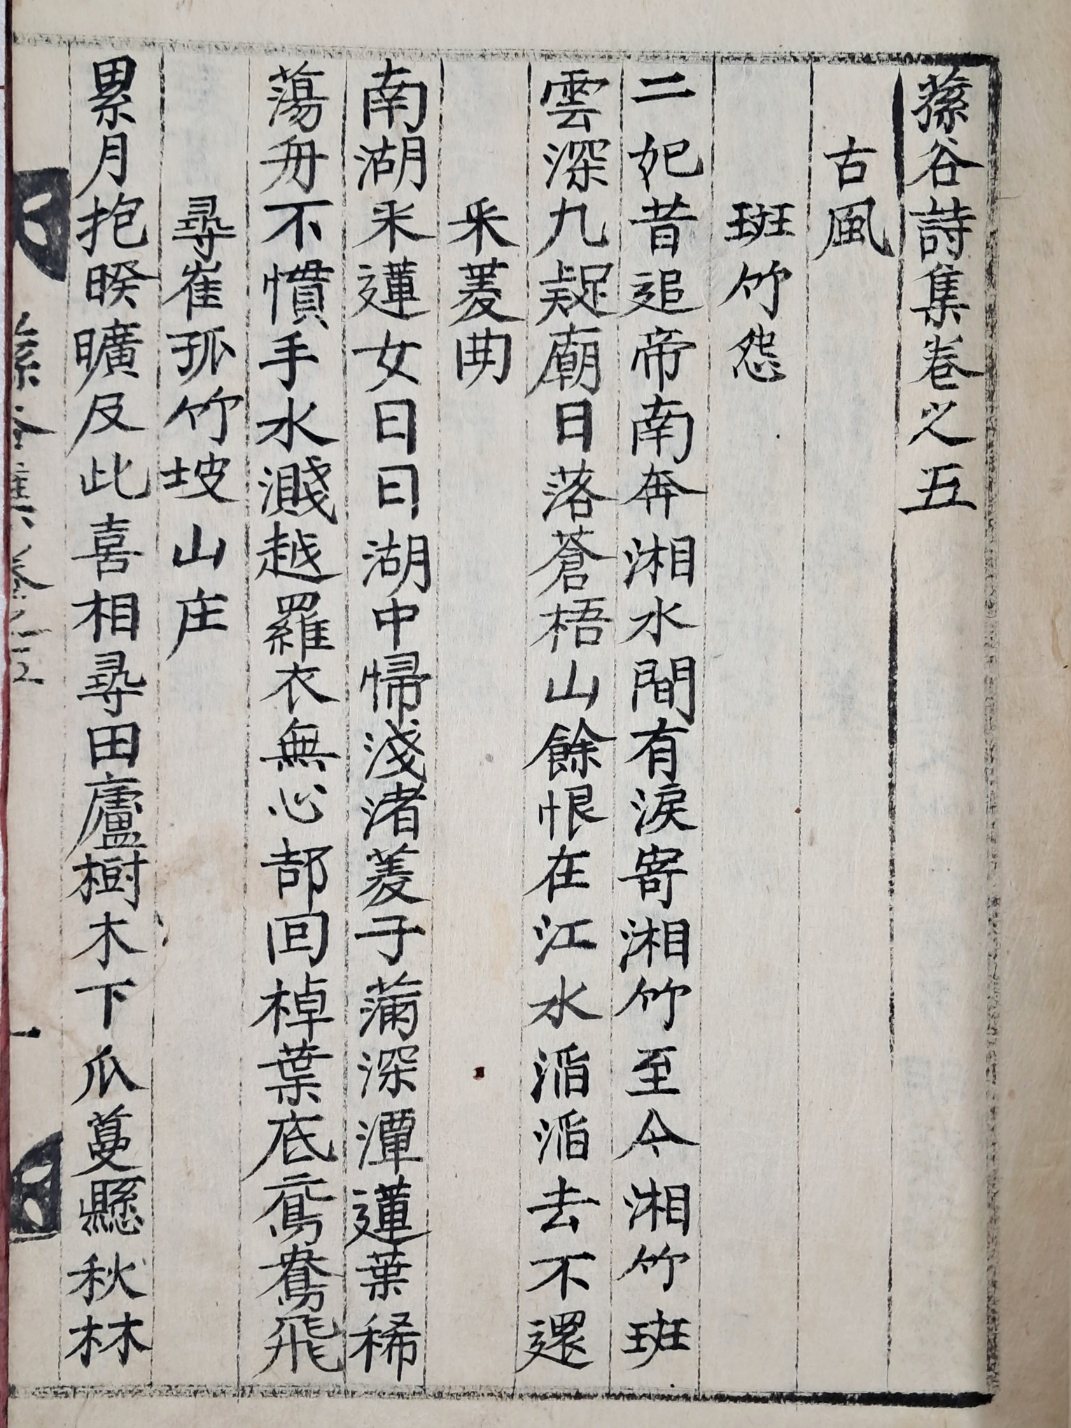 蓀谷詩集卷之五
古風
斑竹怨
二妃昔追帝南奔湘水間有淚寄湘竹至今湘竹斑
雲深九疑廟日落蒼梧山餘恨在江水滔滔去不還
采菱曲
南湖采蓮女日日湖中歸淺渚菱子滿深潭蓮葉稀
蕩舟不慣手水濺越羅衣無心却回棹葉底鴛鴦飛
尋崔孤竹坡山庄
累月抱暌曠及此喜相尋田廬樹木下瓜蔓懸秋林
蓀谷集卷之五
一